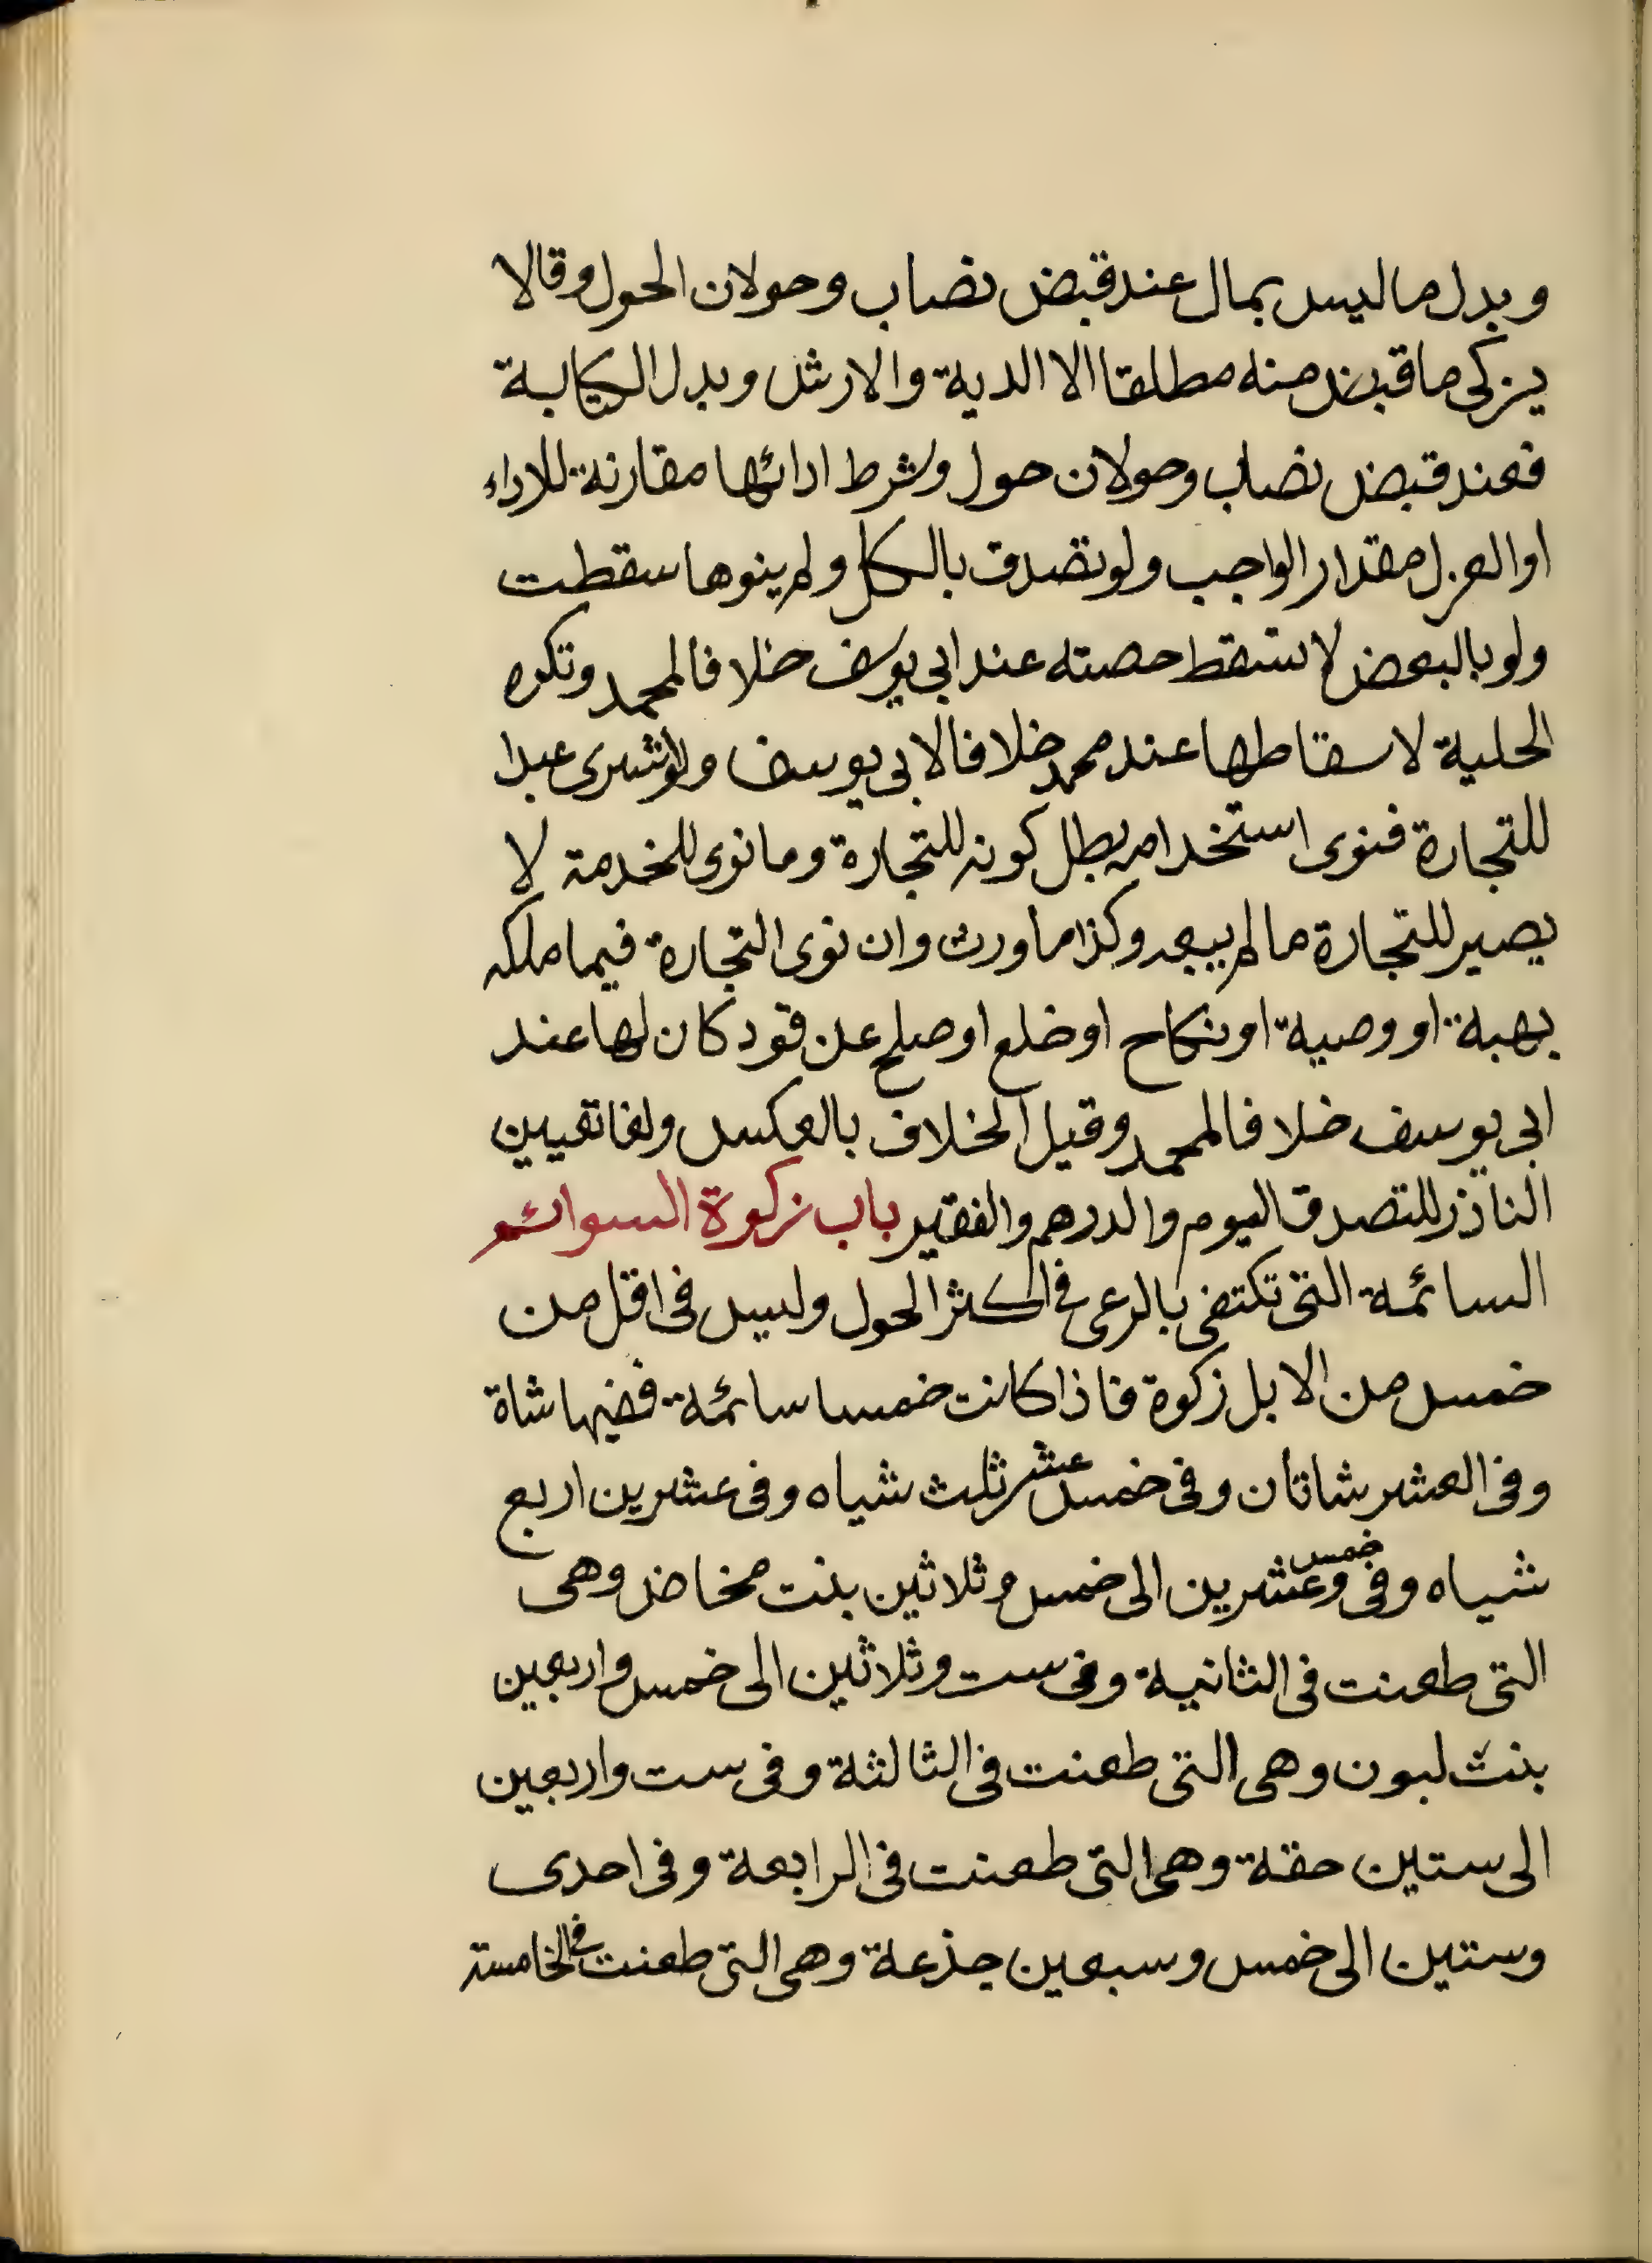 وبدل ما ليس بمال عند قبض نصاب وحولان الحول وقالا
يزكى ما قبض منه مطلقا الا الدية والارش وبدل الكتابة
فعند قبض نصاب وحولان حول وشرط ادائها مقارنة للاداء
او العزل مقدار الواجب ولو تصدق بالكل ولم ينوها سقطت
ولو بالبعض لا تسقط حصته عند ابى يوسف خلافا لمحمد وتكره
الحلية لاسقاطها عند محمد خلافا لابى يوسف ولو شرى عبدا
للتجارة فنوى استخدامه بطل كونه للتجارة وما نوى للخدمة لا
يصير للتجارة ما لم يبعه وكذا ما ورث وان نوى التجارة فيما ملكه
بهبة او وصية او نكاح او خلع او صلح عن قود كان لها عند
ابى يوسف خلافا لمحمد وقيل الخلاف بالعكس ولغا تعيين
الناذر للتصدق اليوم والدرهم والفقير باب زكوة السوائم
السائمة التى تكتفى بالرعى فى اكثر الحول وليس فى اقل من
خمس من الابل زكوة فاذا كانت خمسا سائمة ففيها شاة
وفى العشر شاتان وفى خمس عشر ثلث شياه وفى عشرين اربع
شياه وفى خمس وعشرين الى خمس وثلاثين بنت مخاض وهى
التى طعنت فى الثانية وفى ست وثلاثين الى خمس واربعين
بنت لبون وهى التى طعنت فى الثالثة وفى ست واربعين
الى ستين حقة وهى التى طعنت فى الرابعة وفى احدى
وستين الى خمس وسبعين جذعة وهى التى طعنت فى الخامسة